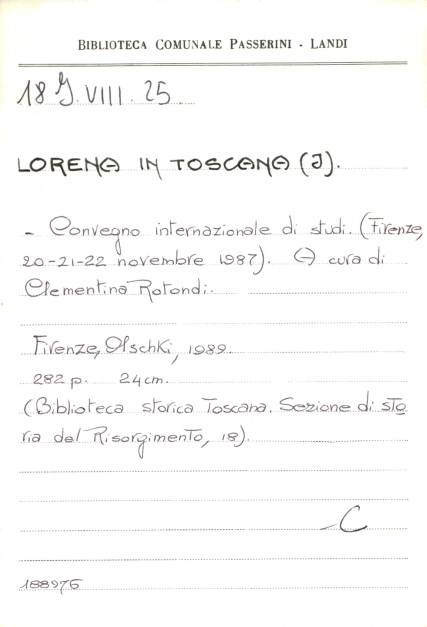 BIBLIOTECA COMUNALE PASSERINI - LANDI
18 J. VIII. 25
LORENA IN TOSCANA (I).
- Convegno internazionale di studi. (Firenze,
20-21-22 novembre 1987). A cura di
Clementina Rotondi.
Firenze, Olschki, 1989.
282 p. 24 cm.
(Biblioteca storica Toscana. Sezione di sto
ria del Risorgimento, 18).
-C
188976